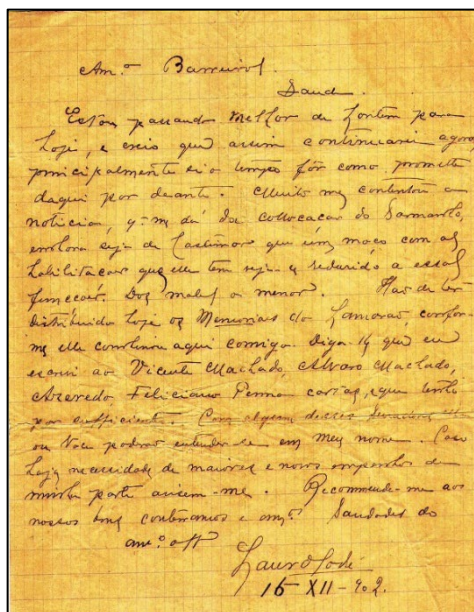 Am.º Barreiros.
Saude.
Estou passando melhor de hontem para
hoje, e creio que assim continuarei agora
principalmente si o tempo fôr como promette
daqui por deante. Muito me contentou a
noticia, q. me dá da collocação do Sarmanho,
embora seja de lastimar que um moço com as
habilitações que elle tem seja reduzido a essas
funcções. Dos males o menor. Hão de ter
distribuido hoje os Memoriaes do Lamarão, confor-
me elle combinou aqui comigo. Diga-lhe que eu
escrevi ao Vicente Machado, Alvaro Machado,
Azeredo Feliciano Penna cartas, que tenho
por sufficiente. Com algum desses
ou Você poderão entender-se em meu nome. Caso
haja necessidade de maiores e novos empenhos de
minha parte avisem-me. Recommende-me aos
nossos bons conterraneos e am.os Saudades do
am.º aff
Lauro Sodré
15 XII - 902.